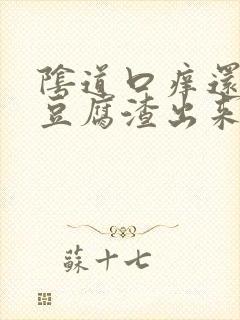 陰道口痒還
豆腐渣出來
蘇十七